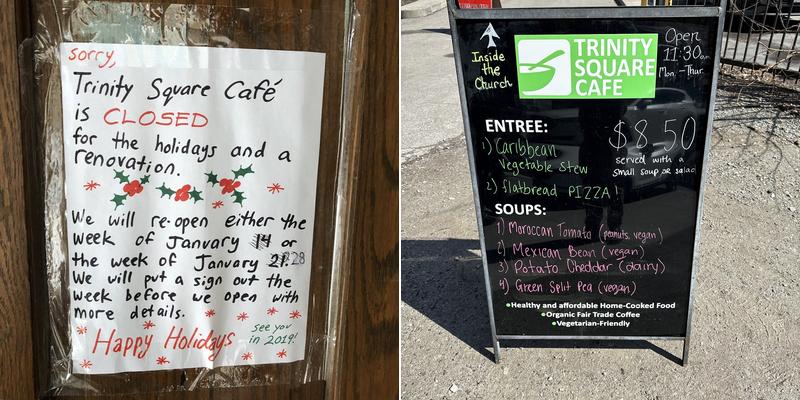 sorry,
Trinity Square Café
is CLOSED
for the holidays and a
renovation.
We will re-open either the
week of January 14 or
the week of January 21. 28
We will put a sign out the
week before we open with
more details.
Happy Holidays
see you
in 2019!
Inside
the
Church
TRINITY
SQUARE
CAFE
Open
11:30am
Mon.-Thur.
ENTREE:
$8.50
served with a
small soup or salad
1) Caribbean
Vegetable Stew
2) flatbread PIZZA!
SOUPS:
1) Moroccan Tomato (peanuts, vegan)
2) Mexican Bean (vegan)
3) Potato Cheddar (dairy)
4) Green Split Pea (vegan)
•Healthy and affordable Home-Cooked Food
•Organic Fair Trade Coffee
•Vegetarian-Friendly